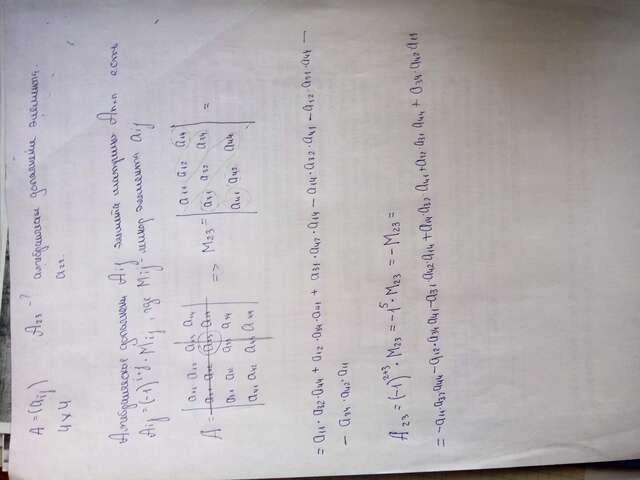 A = (aij) A23 - ? алгебраическ дополнение элемента
4×4 a23.
Алгебраическое дополнени Aij элемента матрицы An,n есть
Aij = (-1)^i+j · Mij, где Mij - минор элемента aij
a11 a12 a13 a14 a11 a12 a14
A = a21 a22 a23 a24 => M23 = a31 a32 a34 =
a31 a32 a33 a34 a41 a42 a44
a41 a42 a43 a44
= a11 · a32 · a44 + a12 · a34 · a41 + a31 · a42 · a14 - a14 · a32 · a41 - a12 · a31 · a44 -
- a34 · a42 · a11
A23 = (-1)^2+3 · M23 = -1^5 · M23 = - M23 =
= -a11 · a32 a44 - a12 · a34 a41 - a31 · a42 · a14 + a14 · a32 · a41 + a12 · a31 a44 + a34 · a42 · a11